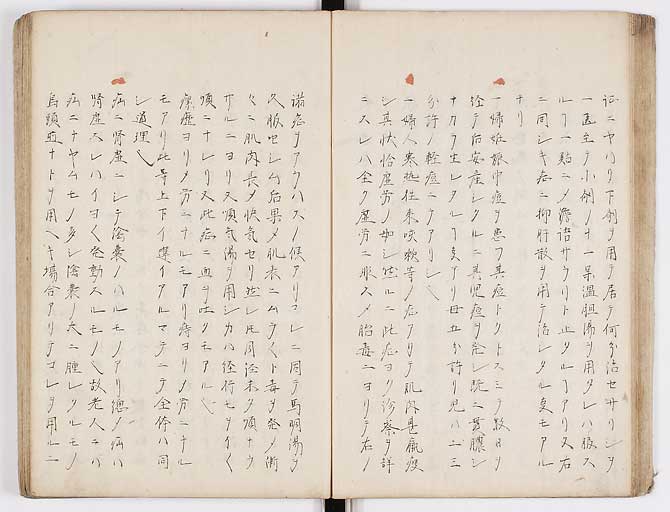 証ニヤハリ下剤ヲ用テ居テ何分治セサリシヲ
一医生テ小剤ノ十一味温胆湯ヲ用タレハ服ス
ルヿ一貼ニメ譫語サラリト止タルヿアリ又右
ニ同シキ症ニ抑肝散ヲ用テ治シタルヿモアル
ナリ
一婦妊娠中痘ヲ患フ其痘トクトスミテ数日ヲ
経テ后安産シタルニ其児痘ヲ発シ既ニ貫膿シ
ナカラ生レタルヿアリ母五分許リ児ハ二三
分許ノ軽痘ニテアリシ
一婦人寒熱往来咳嗽等ノ症アリテ肌肉羸痩
シ其状恰虚労ノ如シ然ルニ此症ヨク診察ヲ詳
ニスレハ全ク虚労ニ非スメ胎毒ニヨリテ右ノ
諸症ヲアラハスノ候アリコレニ因テ馬明湯ヲ
久服セシム后果メ肌表ニムラムラト毒ヲ発メ漸
々ニ肌肉長メ快気セリ然レ𪜈同治未タ順ナラ
サルニヨリ又順気湯ヲ用シカハ経行モヨイク
順ニナレリ又此症ニ血ヲ吐クモアル
療症ヨリメ労ニナルモアリ痔ヨリノ労ニナル
モアリ此等上下イ違イアルマテニテ全体ハ同
シ道理
病ニ腎虚ニシテ陰嚢ノハルモノアリ總メ病ハ
腎虚スレハイヨイヨ発動スルモノ故老人ニハ
病ニナヤムモノ多シ陰嚢ノ大ニ腫レタルモノ
烏頭煎ナトヲ用ヘキ場合アリテコレヲ用ルニ